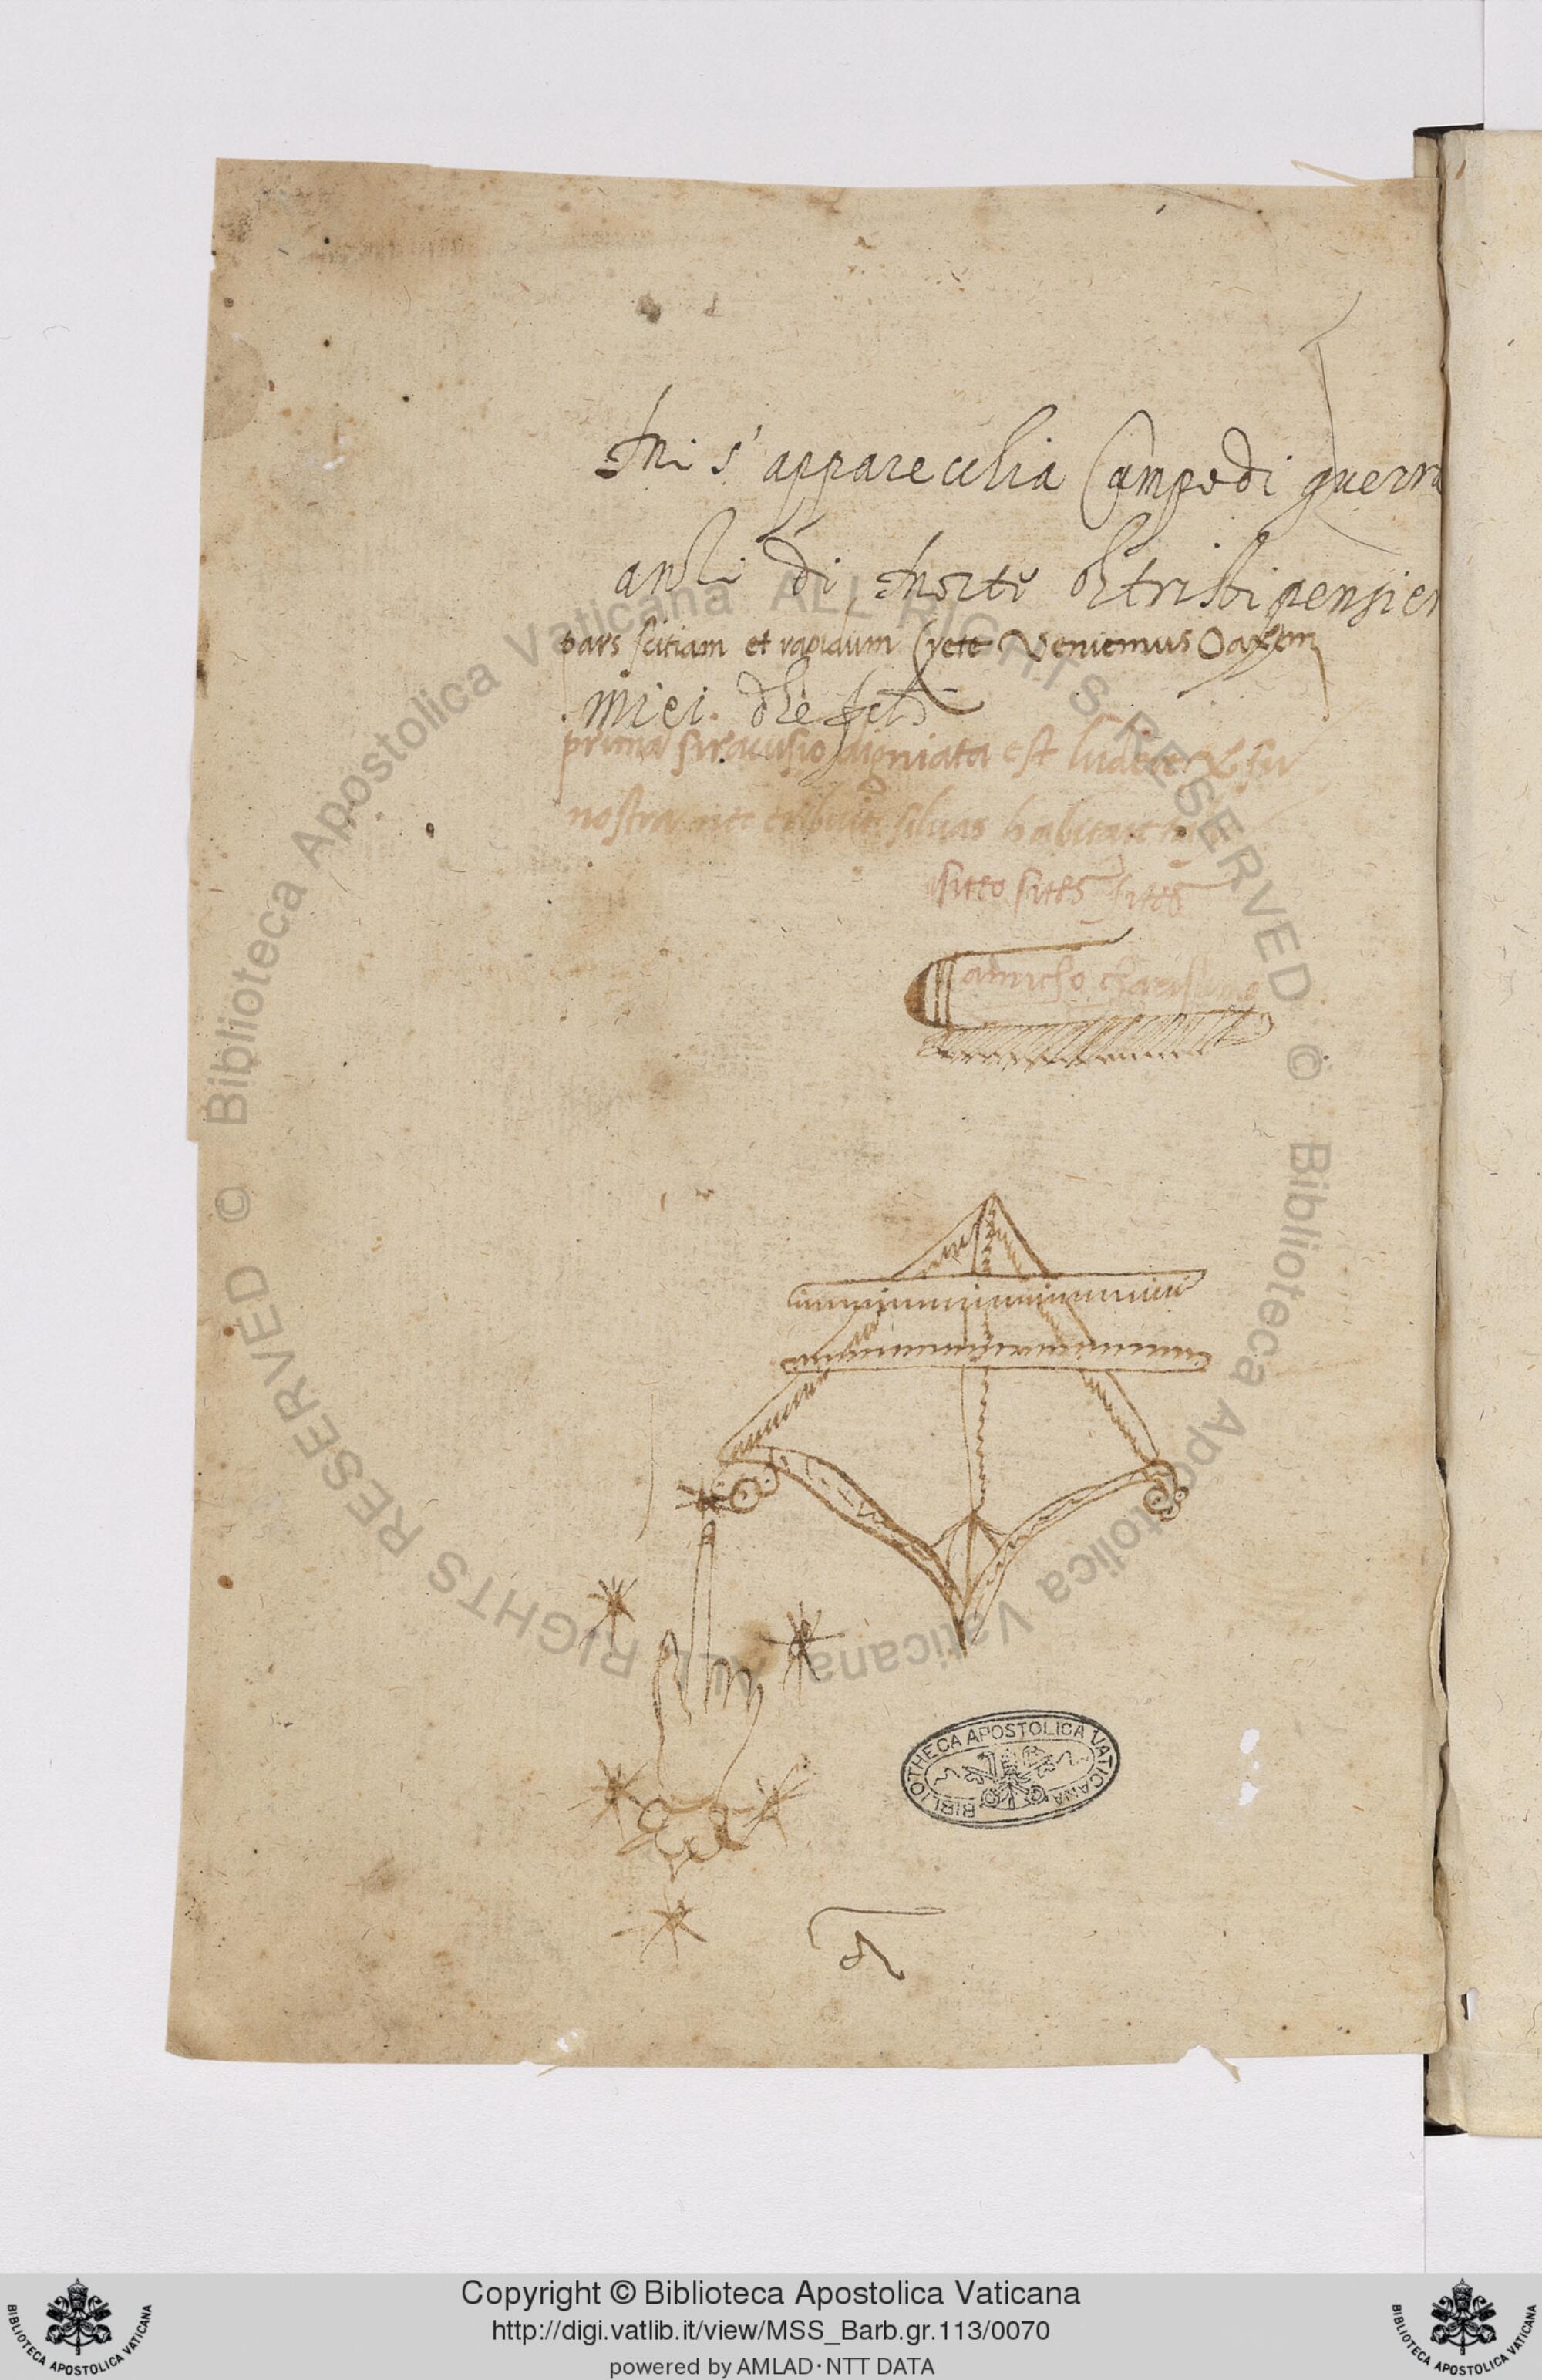 Mi s' apparechia Campo di guerra
di Morte tristi pensier
pars scitiam et rapidum Crete Veniemus Oaxem
miei che
prima siracusio digniata est ludere
nostra nec erubuit silvas habitare
sitto sitto sitto
amicho charissimo
BIBLIOTHECA APOSTOLICA VATICANA
© Biblioteca Apostolica Vaticana ALL RIGHTS RESERVED
© Biblioteca Apostolica Vaticana ALL RIGHTS RESERVED
Copyright © Biblioteca Apostolica Vaticana
http://digi.vatlib.it/view/MSS_Barb.gr.113/0070
powered by AMLAD·NTT DATA
BIBLIOTECA APOSTOLICA VATICANA
BIBLIOTECA APOSTOLICA VATICANA